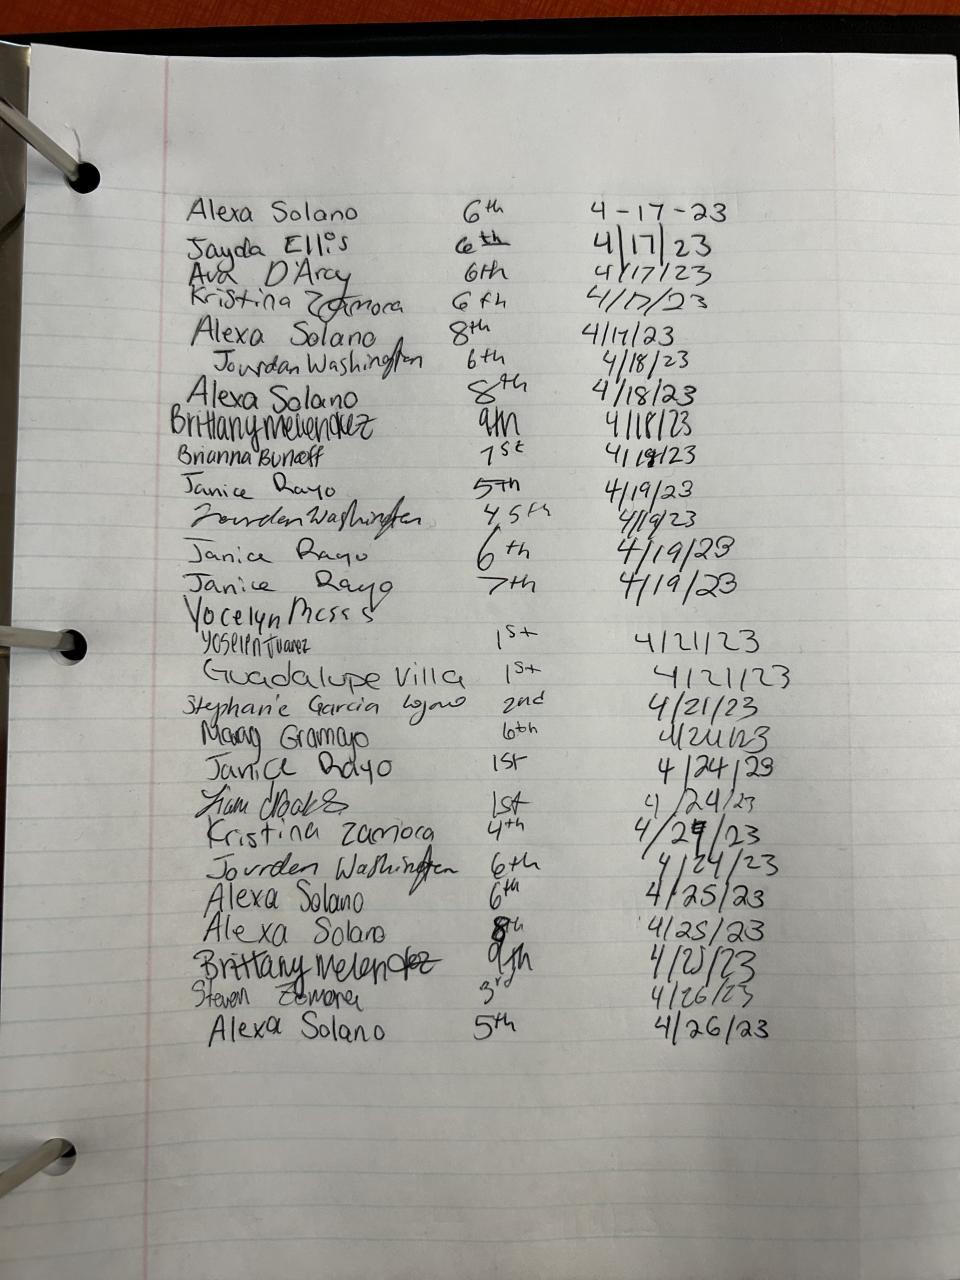 Alexa Solano 6th 4-17-23
Jayda Ellis 6th 4/17/23
Ava D'Arcy 6th 4/17/23
Kristina Zamora 6th 4/17/23
Alexa Solano 8th 4/17/23
Jourdan Washington 6th 4/18/23
Alexa Solano 8th 4/18/23
Brittany Melendez 9th 4/18/23
Brianna 1st 4/19/23
Janice Rayo 5th 4/19/23
Jourden Washington 4 5th 4/19/23
Janice Rayo 6th 4/19/23
Janice Rayo 7th 4/19/23
Yocelyn
Yoselen Juarez 1st 4/21/23
Guadalupe Villa 1st 4/21/23
Stephanie Garcia 2nd 4/21/23
Gramayo 6th
Janice Rayo 1st 4/24/23
1st 4/24/23
Kristina Zamora 4th 4/24/23
Jourden Washington 6th 4/24/23
Alexa Solano 6th 4/25/23
Alexa Solano 8th 4/25/23
Brittany Melendez 9th 4/25/23
Steven Zamora 3rd 4/26/23
Alexa Solano 5th 4/26/23